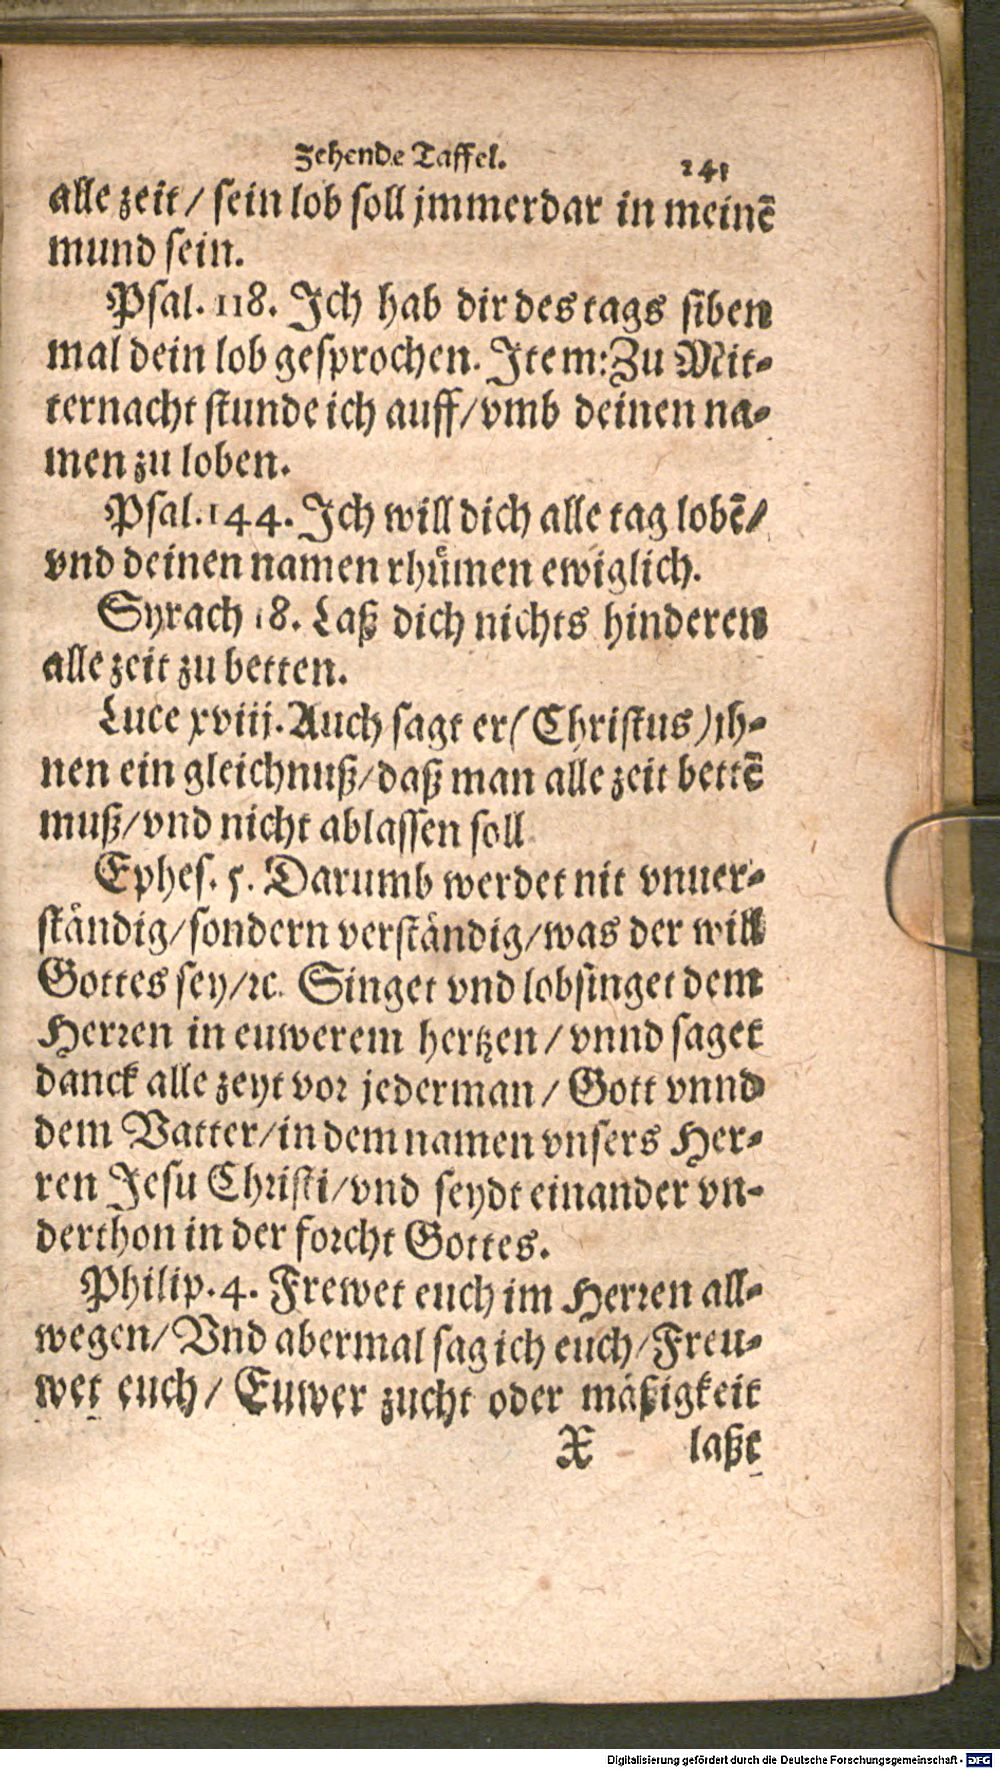 Zehende Taffel. 241
alle zeit / sein lob soll jmmerdar in meinē
mund sein.
Psal. 118. Ich hab dir des tags siben
mal dein lob gesprochen. Item: Zu Mit-
ternacht stunde ich auff / vmb deinen na-
men zu loben.
Psal. 144. Ich will dich alle tag lobē /
vnd deinen namen rhümen ewiglich.
Syrach 18. Laß dich nichts hinderen
alle zeit zu betten.
Luce xviij. Auch sagt er (Christus) jh-
nen ein gleichnuß / daß man alle zeit bettē
muß / vnd nicht ablassen soll
Ephes. 5. Darumb werdet nit vnuer-
ständig / sondern verständig / was der will
Gottes sey / ꝛc. Singet vnd lobsinget dem
Herren in euwerem hertzen / vnnd saget
danck alle zeyt vor jederman / Gott vnnd
dem Vatter / in dem namen vnsers Her-
ren Jesu Christi / vnd seydt einander vn-
derthon in der forcht Gottes.
Philip. 4. Frewet euch im Herren all-
wegen / Vnd abermal sag ich euch / Freu-
wet euch / Euwer zucht oder mäßigkeit
X laßt
Digitalisierung gefördert durch die Deutsche Forschungsgemeinschaft - DFG